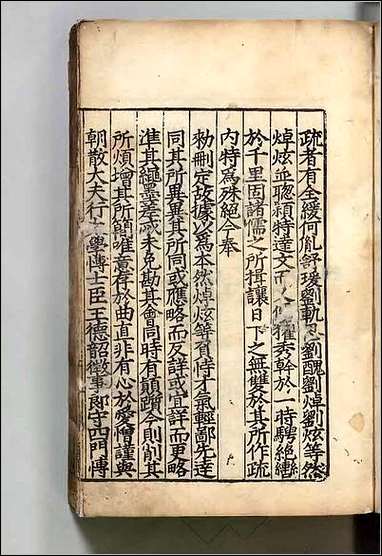 疏者有全緩何胤舒瑗劉軌思劉醜劉焯劉炫等然
焯炫並聦穎特達文而擢秀幹於一時騁絕轡
於千里固諸儒之所揖讓日下之無雙於其所作疏
內特爲殊絕今奉
勑刪定故據以爲本然焯炫等負恃才氣輕鄙先達
同其所異異其所同或應略而反詳或宜詳而更略
準其繩墨差忒未免勘其會同時有顛躓今則削其
所煩增其所簡唯意存於曲直非有心於愛憎謹與
朝散大夫行學博士臣王德韶徵事郎守四門博